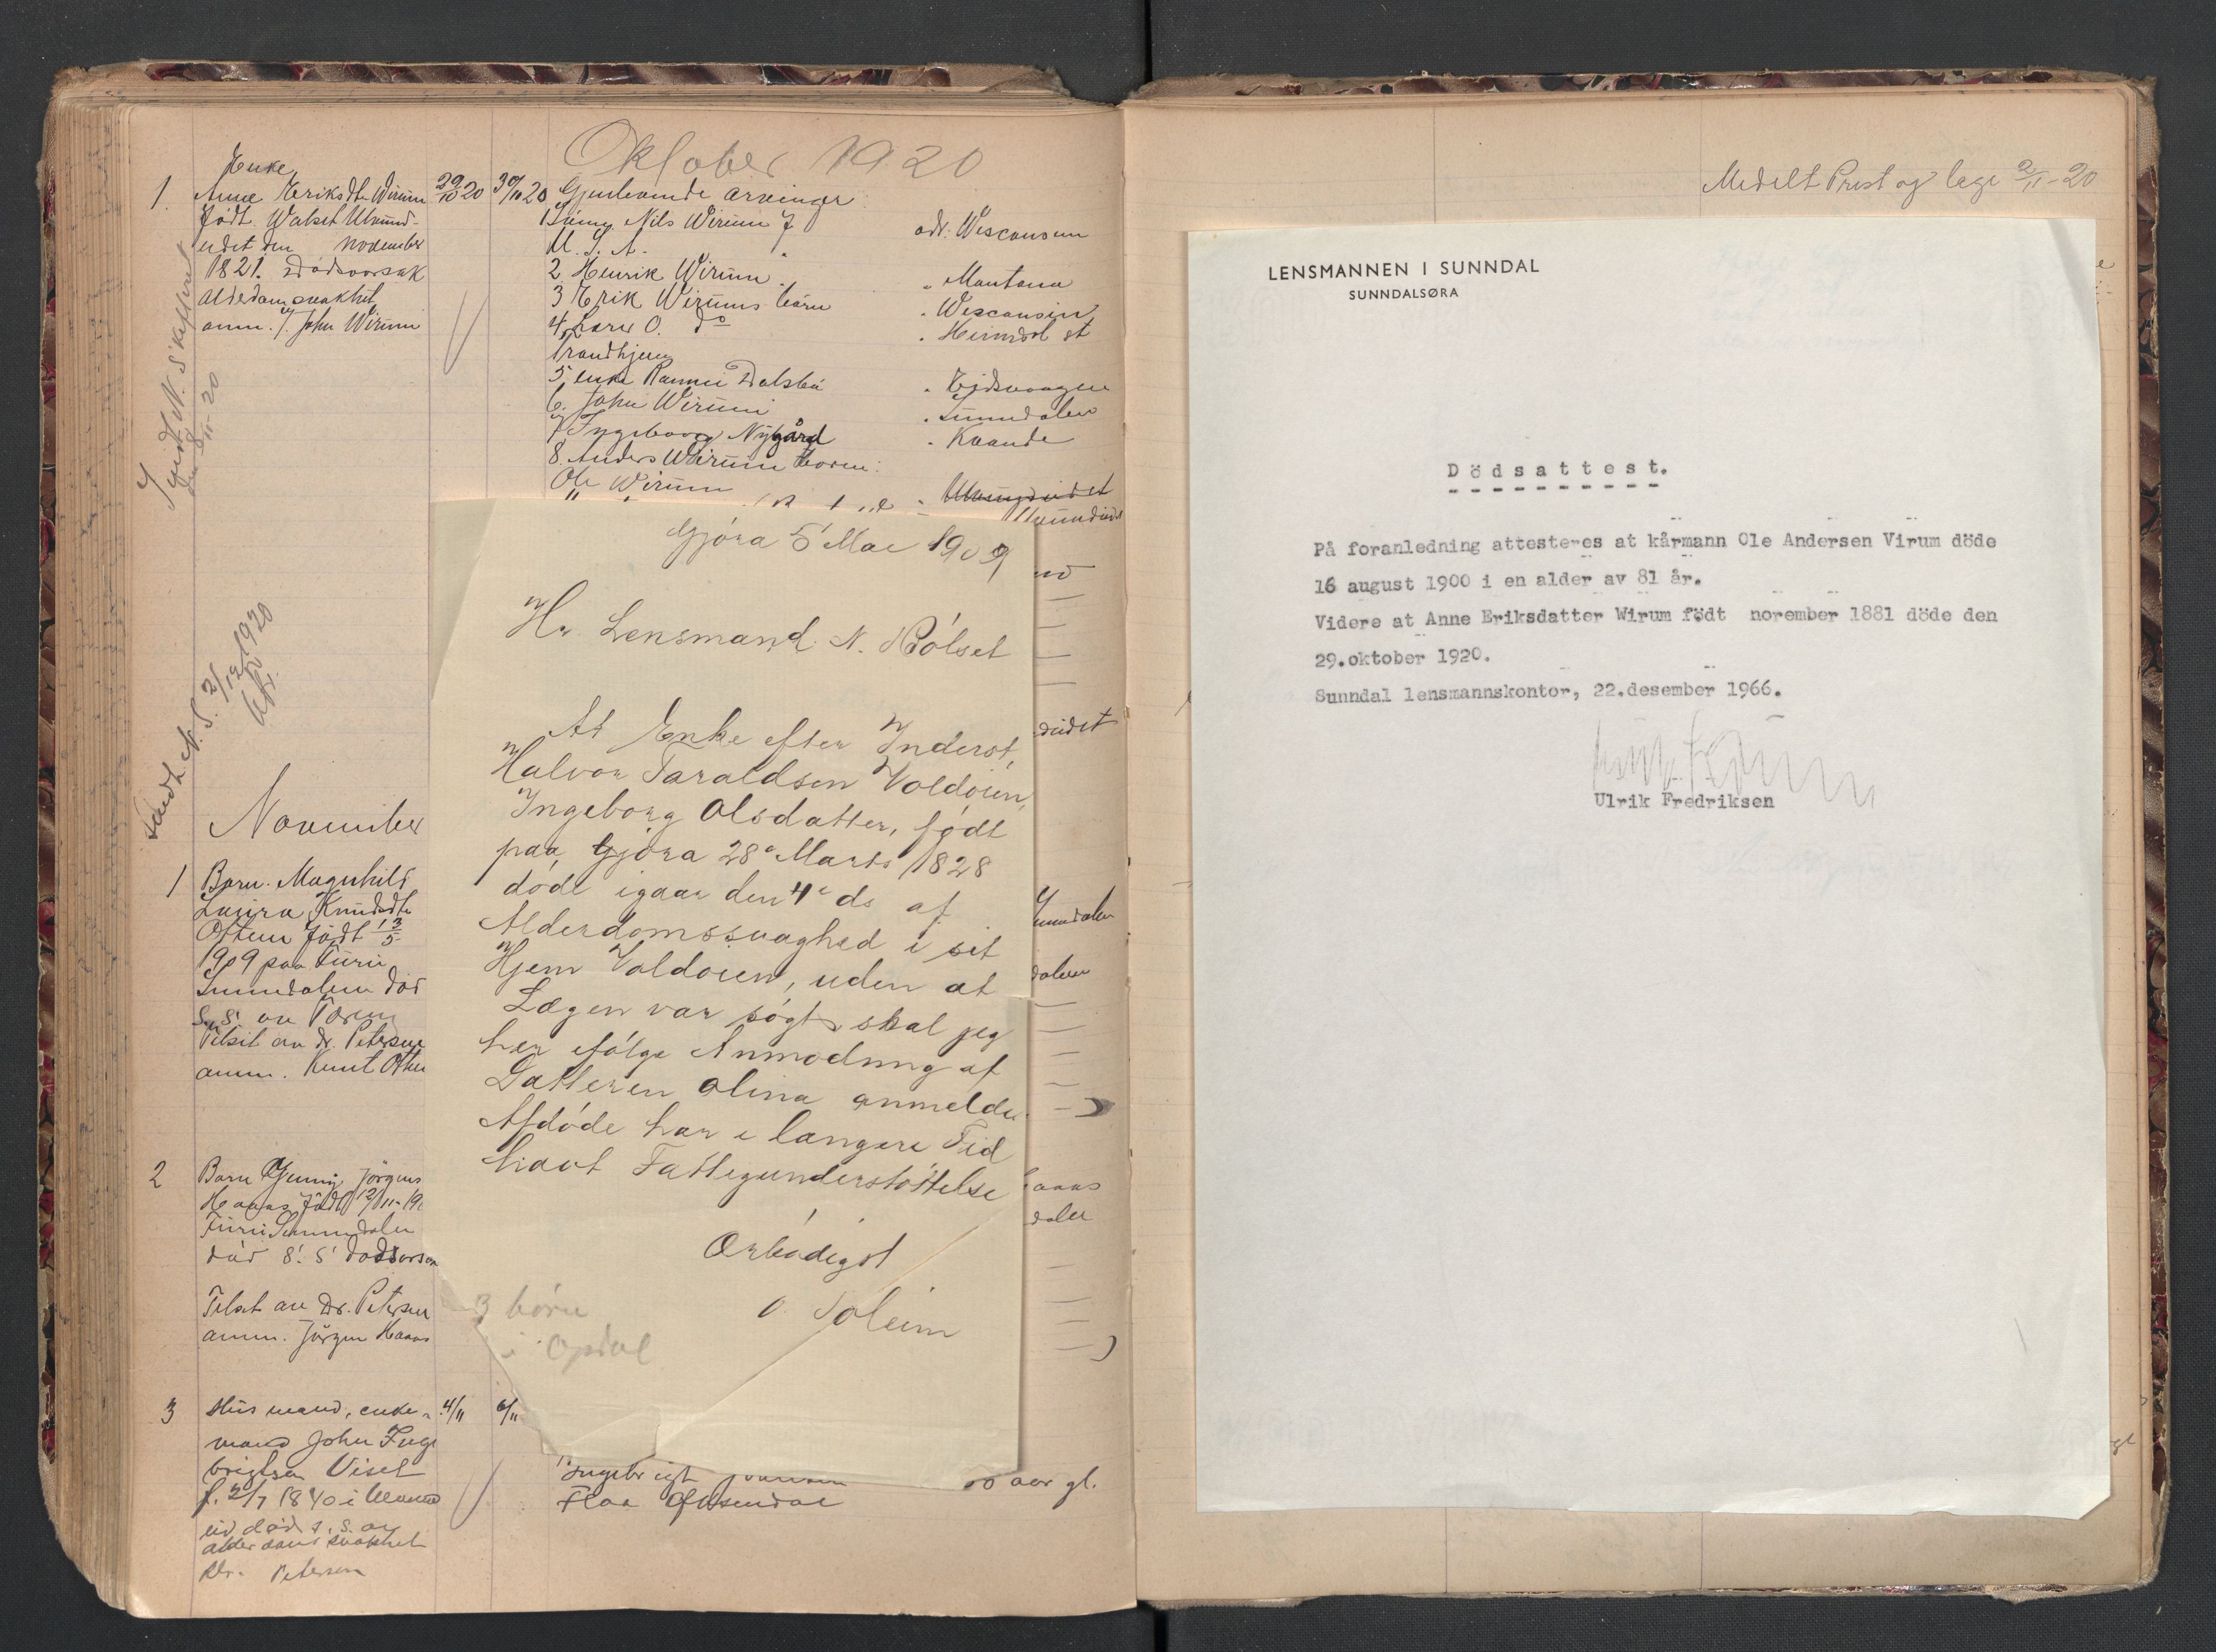 Oktober 1920
1.
Enke
Anne Eriksdt Wirum
født. Walset Ulvund-
eidet den november
1821. Dødsorsak
alderdomsvakhet
anm. af John Wirum
29/10 20
30/11 20
Gjenlevende arvinger
1 Sönn, Nils Wirum
adr: Wisconsin
U. S. A.
2 Henrik Wirum
" Montana
3 Erik Wirums barn
" Wisconsin
4, Lars O. do
" Heimdal st
Trondhjem
5, enke Dalsbö
" Eidsvaagen
6. John Wirum
" Sunndalen
7 Ingeborg Nygård
8. Anders Wirum barn:
Ole Wirum
Ulvundeidet
den 8/11-20
Sendt N. S. 2/12 1920
November
1
Barn. Magnhild
Laura Knudsdt
Ottem født 13/5
1909 paa Furu
Sunndalen død
Tilset av dr. Petersen
anm. Knut Otte
2
Barn Jenny Jörgens
Haaas født 12/11-19
Furu Sunndalen
död S. S
Tilset av Dr. Petersen
anm. Jörgen Haaas
3
Husmand, enke-
mand John Inge
brigtsen Viset
f. 2/7 1840 i Ulvund
eid død s. s. av
alderdomsvakhet
Dr. Petersen
4/11
6/11
Ingebrigt
Flaa Öksendal
aar gl.
Gjöra 5 Mai 1909
Hr. Lensmand N. Hólset
At Enke efter Inderst,
Halvor Taraldsen Voldöien,
Ingeborg Olsdatter, født
paa Gjöra 28e Marts 1828
døde igaar den 4e ds af
Alderdomssvaghed i sit
Hjem Voldoien, uden at
Lægen var søgt skal jeg
her ifølge Anmodning af
Datteren Olina anmelde.
Afdøde har i længere Tid
havt Fattigunderstøttelse
Ærbødigst
O. Soleim
3 børn
i Opdal
Medelt Prest og lege 2/11-20
LENSMANNEN I SUNNDAL
SUNNDALSØRA
Dödsattest.
På foranledning attesteres at kårmann Ole Andersen Virum döde
16 august 1900 i en alder av 81 år.
Videre at Anne Eriksdatter Wirum födt norember 1881 döde den
29.oktober 1920.
Sunndal lensmannskontor, 22.desember 1966.
Ulrik Fredriksen